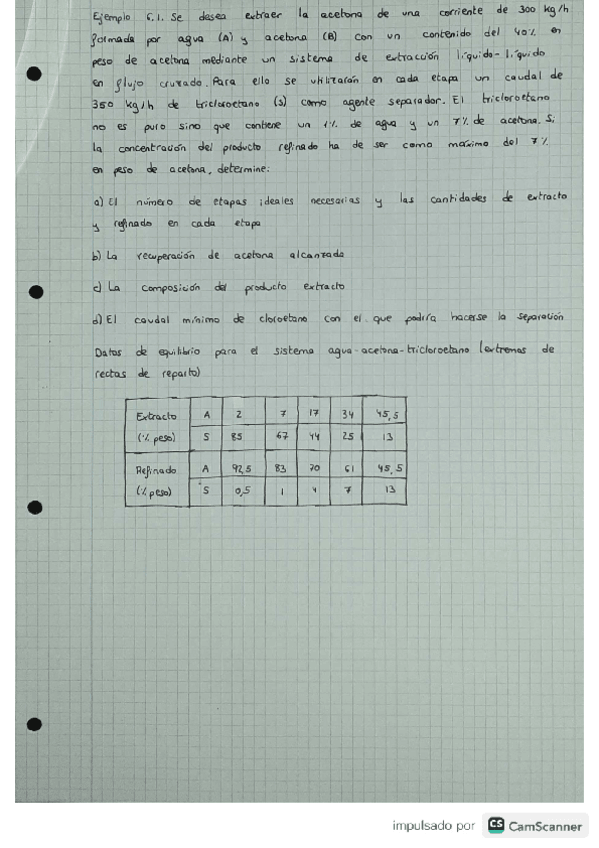 Ejemplo 6.1. Se desea extraer la acetona de una corriente de 300 kg/h
formada por agua (A) y acetona (B) con un contenido del 40% en
peso de acetona mediante un sistema de extracción líquido-líquido
en flujo cruzado. Para ello se utilizarán en cada etapa un caudal de
350 kg/h de tricloroetano (S) como agente separador. El tricloroetano
no es puro sino que contiene un 1% de agua y un 7% de acetona. Si
la concentración del producto refinado ha de ser como máximo del 7%
en peso de acetona, determine:
a) El número de etapas ideales necesarias y las cantidades de extracto
y refinado en cada etapa
b) La recuperación de acetona alcanzada
c) La composición del producto extracto
d) El caudal mínimo de cloroetano con el que podría hacerse la separación
Datos de equilibrio para el sistema agua-acetona-tricloroetano (extremos de
rectas de reparto)
Extracto A 2 7 17 34 45,5
(% peso) S 85 67 44 25 13
Refinado A 92,5 83 70 61 45,5
(% peso) S 0,5 1 4 7 13
impulsado por CS CamScanner